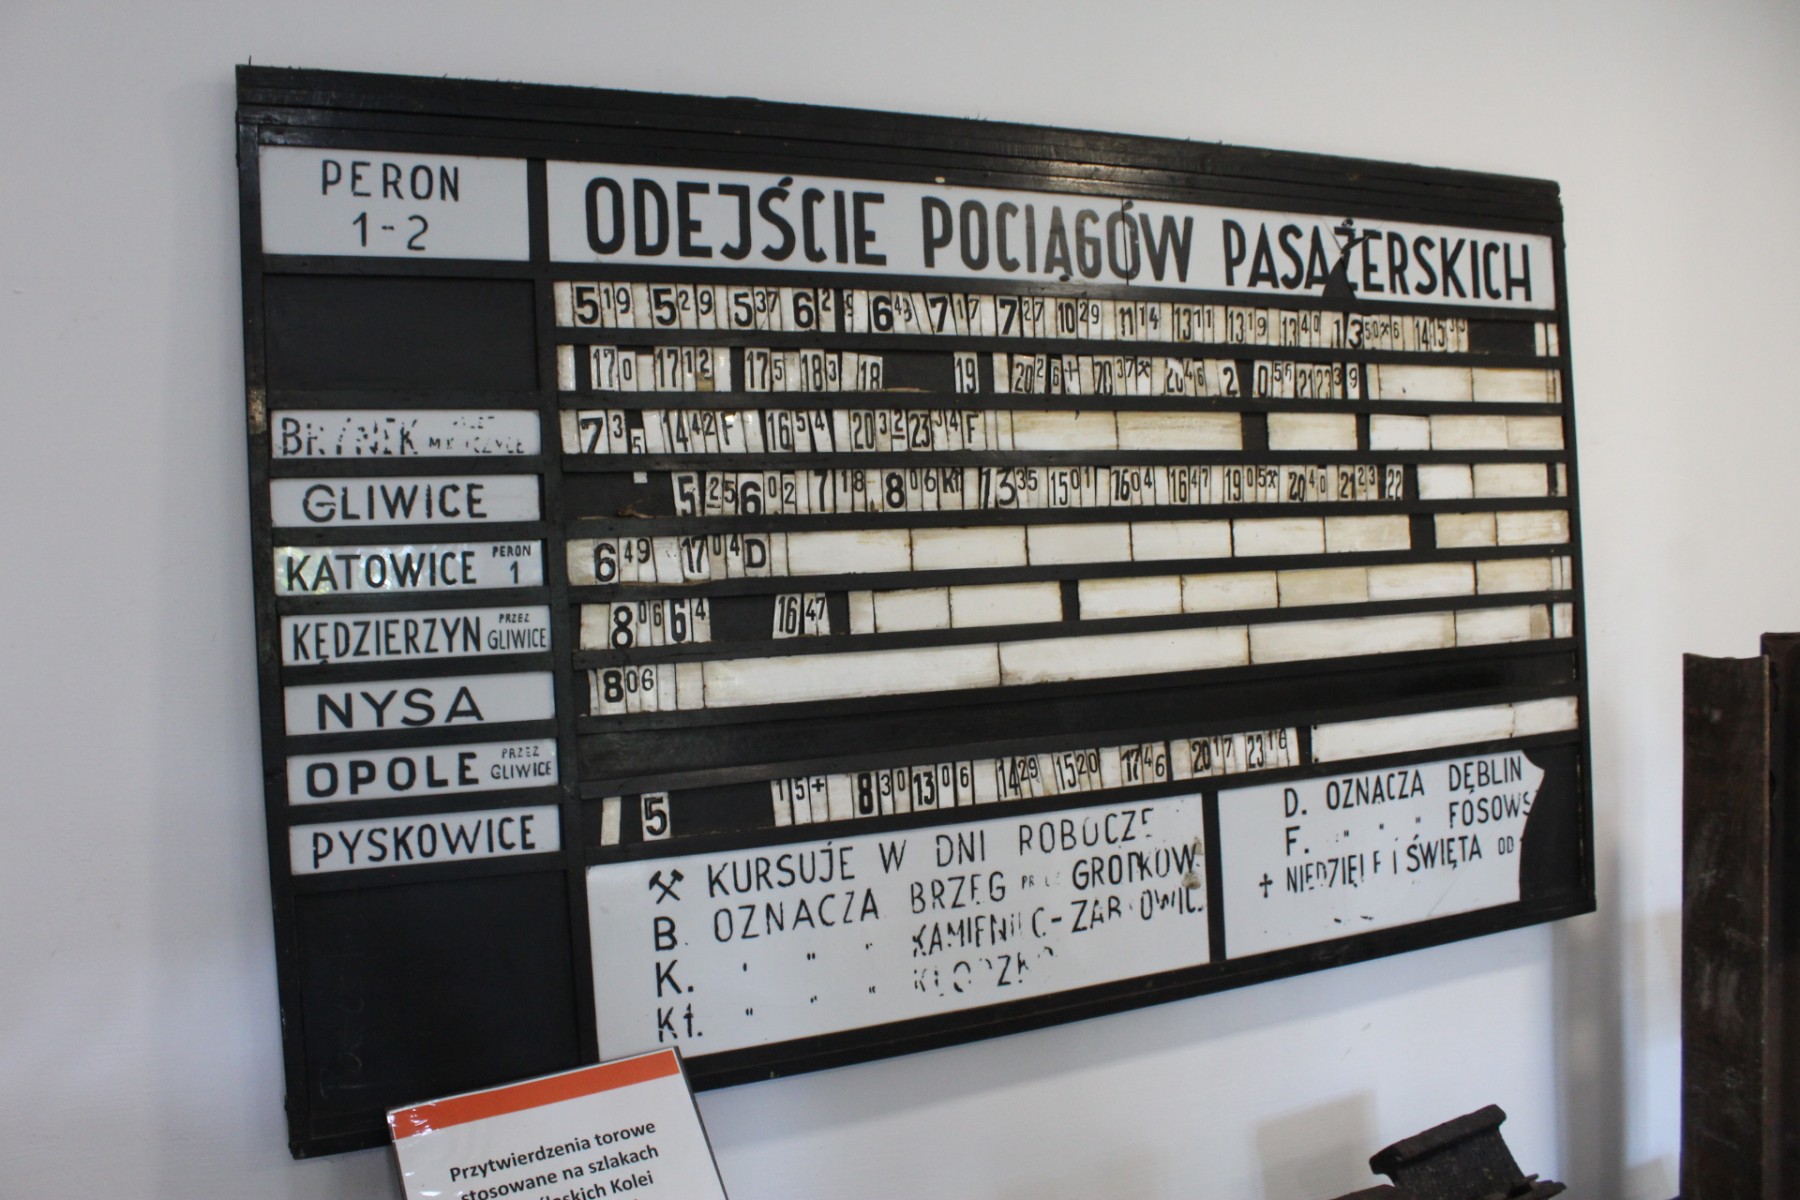 PERON
1-2
ODEJŚCIE POCIĄGÓW PASAŻERSKICH
5 19 5 29 5 37 6 2 6 49 7 17 7 27 10 29 11 14 13 11 13 19 13 40 13 50 6 14 15 33
17 0 17 12 17 5 18 3 18 19 20 26 + 20 37 ⚒ 20 46 2 0 55 21 23 39
BRYNEK
7 35 14 42 F 16 54 20 32 23 34 F
GLIWICE
5 25 6 02 7 18 8 06 Kł 13 35 15 01 16 04 16 47 19 05 ⚒ 20 40 21 23 22
KATOWICE PERON 1
6 49 17 04 D
KĘDZIERZYN PRZEZ GLIWICE
8 06 6 4 16 47
NYSA
8 06
OPOLE PRZEZ GLIWICE
PYSKOWICE
5 15 + 8 30 13 06 14 29 15 20 17 46 20 17 23 16
⚒ KURSUJE W DNI ROBOCZE
B. OZNACZA BRZEG GROTKÓW
K. " " " KAMIENIEC-ZĄBKOWIC
Kł. " " " KŁODZKO
D. OZNACZA DĘBLIN
F. " " " FOSOWS
+ NIEDZIELE I ŚWIĘTA OD
Przytwierdzenia torowe
stosowane na szlakach
Kolei